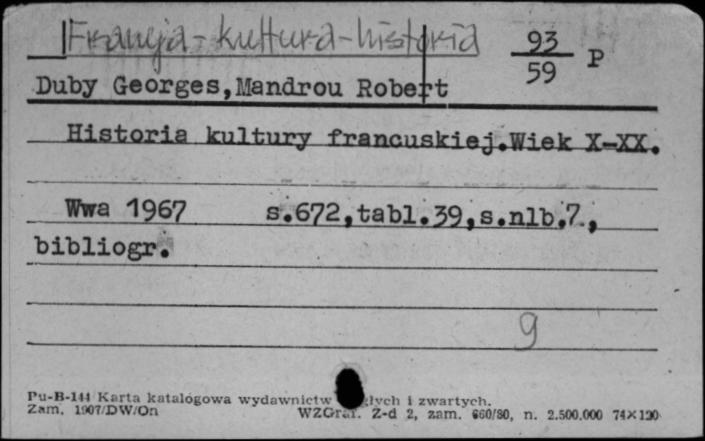 Francja - kultura - historia
93
59 P
Duby Georges,Mandrou Robert
Historia kultury francuskiej.Wiek X-XX.
Wwa 1967 s.672,tabl.39,s.nlb.7.,
bibliogr.
9
Pu-B-144 Karta katalogowa wydawnictw i zwartych.
Zam. 1907/DW/On WZGraf. Z-d 2, zam. 660/80, n. 2.500.000 74×120